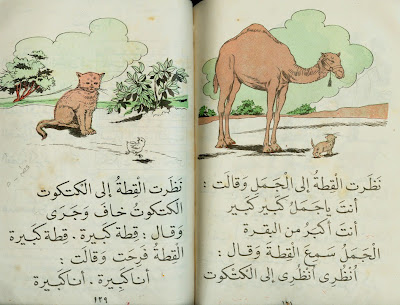 نَظَرَت القِطَةُ إلى الجَمَل وَقَالَت :
أنتَ ياجَمَلُ كَبير كَبير
أنت أكبَرُ من البقرة
الجَمَلُ سَمِعَ القِطَةَ وَقال :
اُنظُرِى اُنظُرِى إلى الكَتكوت
نَظَرت القِطَةُ إلى الكَتكوت
الكَتكوتُ خافَ وَجَرَى
وَقال : قِطَة كَبيرة . قِطَة كَبيرة
القِطَةُ فَرِحَت وَقالَت :
أنا كَبِيرة . أنا كَبيرة
١٢٩